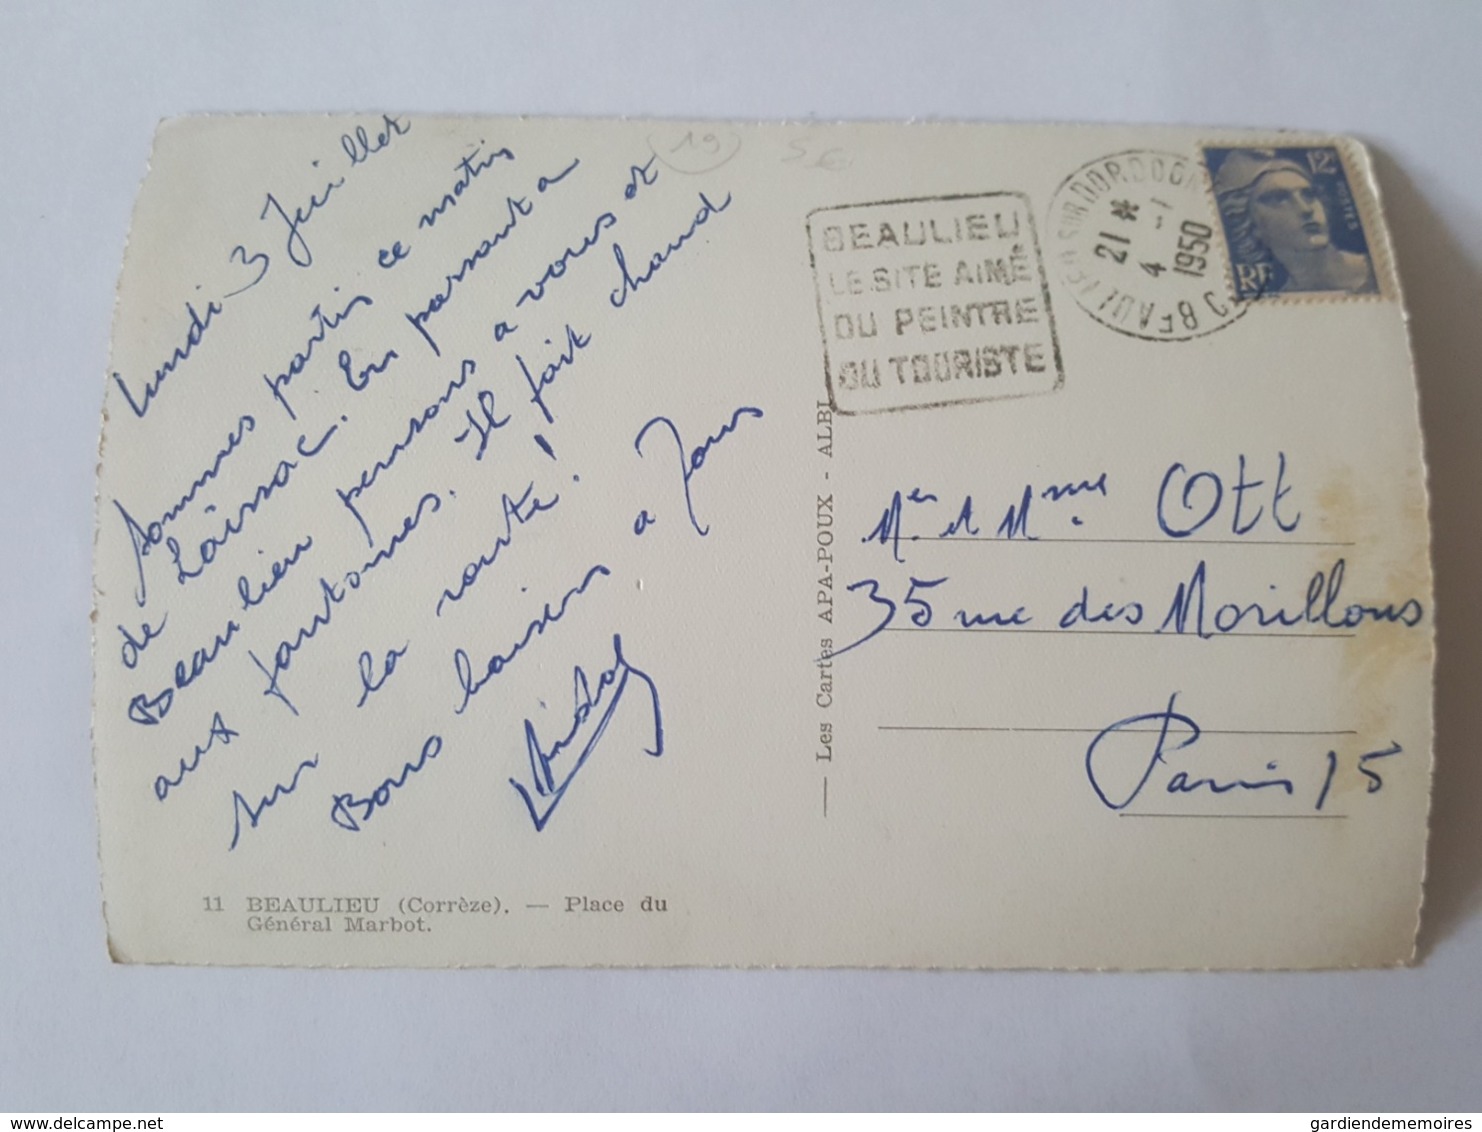 lundi 3 Juillet
sommes partis ce matin
de Laissac. En passant à
Beaulieu pensons à vous et
aux fantomes. Il fait chaud
sur la route!
Bons baisers à Tous
11 BEAULIEU (Corrèze). — Place du
Général Marbot.
— Les Cartes APA-POUX - ALBI
19
BEAULIEU
LE SITE AIMÉ
DU PEINTRE
DU TOURISTE
21 * 4 -7 1950
12F
RF
Mr et Mme Ott
35 rue des Morillons
Paris 15
delcampe.net
gardiendememoires